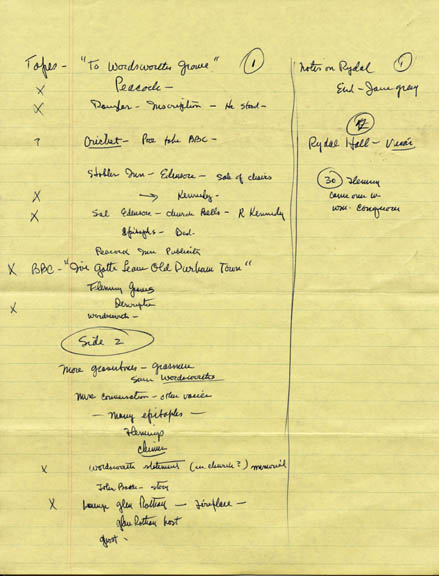 Tapes - "To Wordsworths Grave" 1
X Peacock -
X Inscription - He stood -
? Cricket - Poe take BBC -
Stobler Inn - Edensor - sale of chairs
X → Kennedy -
X Sat Edensor - church Bells - R Kennedy
Epitaphs - Ded.
Peacock Inn Publicity
X BBC - "I've Gotta Leave Old Durham Town"
Fleming Graves
X Description
Wordsworth -
Side 2
More gravestones - Grasmere
Sam Wordsworths
More conversation - other voices
- Many epitaphs -
Flemings
X Wordsworth statement (in church?) memorial
John - story
X Lounge Glen Rothay - Fireplace -
Glen Rothay host
Ghost -
Notes on Rydal 1
End - Jane Gray
Rydal Hall -
30 Fleming
came over w
Wm. Conqueror